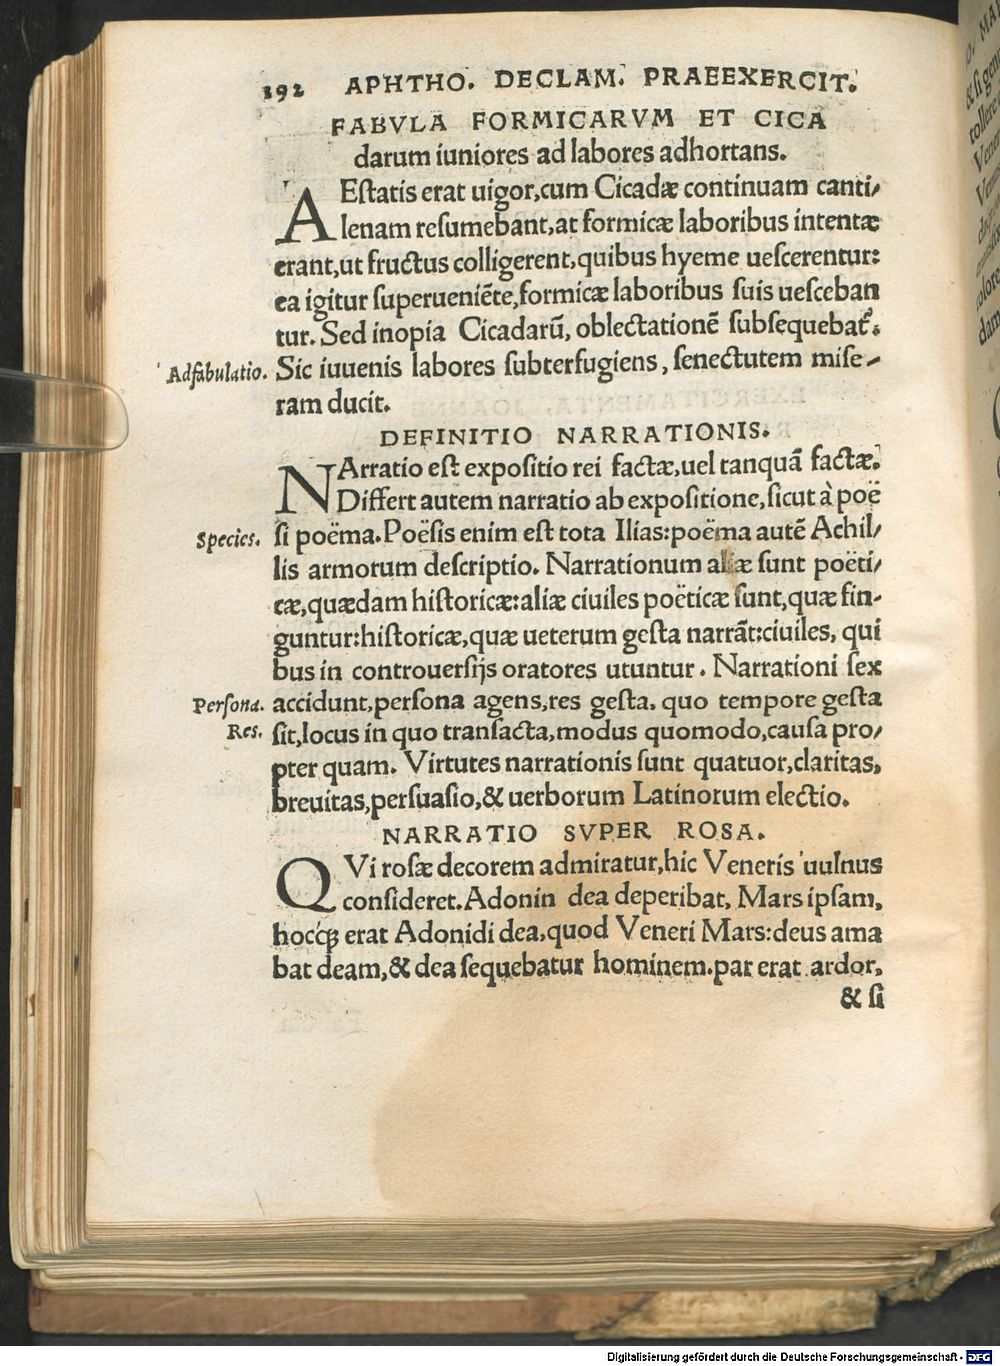 192 APHTHO. DECLAM. PRAEEXERCIT.
FABVLA FORMICARVM ET CICA
darum iuniores ad labores adhortans.
AEſtatis erat uigor,cum Cicadæ continuam canti/
lenam reſumebant,at formicæ laboribus intentæ
erant,ut fructus colligerent,quibus hyeme ueſcerentur:
ea igitur ſuperueniẽte,formicæ laboribus ſuis ueſceban
tur. Sed inopia Cicadarũ, oblectationẽ ſubſequebat᷑.
Adfabulatio. Sic iuuenis labores ſubterfugiens, ſenectutem miſe-
ram ducit.
DEFINITIO NARRATIONIS.
NArratio eſt expoſitio rei factæ,uel tanquã factæ.
Differt autem narratio ab expoſitione,ſicut à poë
Species. ſi poëma. Poëſis enim eſt tota Ilías: poëma autẽ Achil/
lis armorum deſcriptio. Narrationum aliæ ſunt poëti/
cæ,quædam hiſtoricæ: aliæ ciuiles poëticæ ſunt,quæ fin-
guntur: hiſtoricæ,quæ ueterum geſta narrãt: ciuiles, qui
bus in controuerſijs oratores utuntur. Narrationi ſex
Perſona. accidunt,perſona agens,res geſta, quo tempore geſta
Res. ſit,locus in quo tranſacta,modus quomodo,cauſa pro/
pter quam. Virtutes narrationis ſunt quatuor,claritas,
breuitas,perſuaſio,& uerborum Latinorum electio.
NARRATIO SVPER ROSA.
QVi roſæ decorem admiratur,hic Veneris uulnus
conſideret. Adonin dea deperibat, Mars ipſam,
hocq́ꝫ erat Adonidi dea,quod Veneri Mars: deus ama
bat deam,& dea ſequebatur hominem. par erat ardor,
& ſi
Digitalisierung gefördert durch die Deutsche Forschungsgemeinschaft - DFG